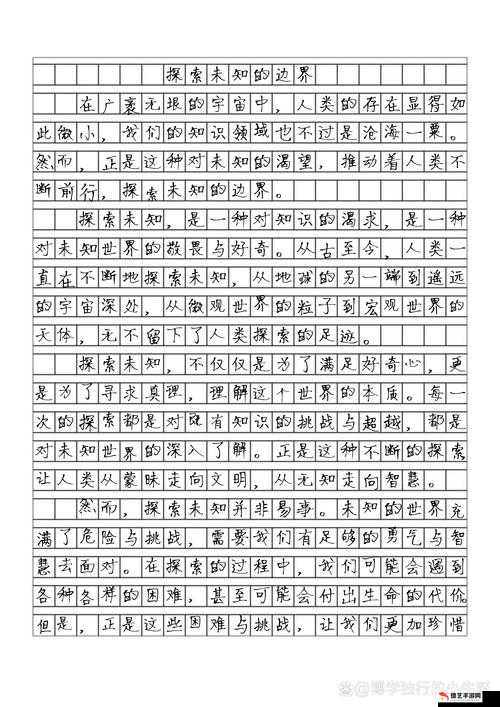 探索未知的边界
在广袤无垠的宇宙中，人类的存在显得如
此微小，我们的知识领域也不过是沧海一粟。
然而，正是这种对未知的渴望，推动着人类不
断前行，探索未知的边界。
探索未知，是一种对知识的渴求，是一种
对未知世界的敬畏与好奇。从古至今，人类一
直在不断地探索未知，从地球的另一端到遥远
的宇宙深处，从微观世界的粒子到宏观世界的
天体，无不留下了人类探索的足迹。
探索未知，不仅仅是为了满足好奇心，更
是为了寻求真理，理解这个世界的本质。每一
次的探索都是对既有知识的挑战与超越，都是
对未知世界的深入了解。正是这种不断的探索
让人类从蒙昧走向文明，从无知走向智慧。
然而，探索未知并非易事。未知的世界充
满了危险与挑战，需要我们有足够的勇气与智
慧去面对。在探索的过程中，我们可能会遇到
各种各样的困难，甚至可能会付出生命的代价。
但是，正是这些困难与挑战，让我们更加珍惜
@博学独行的小